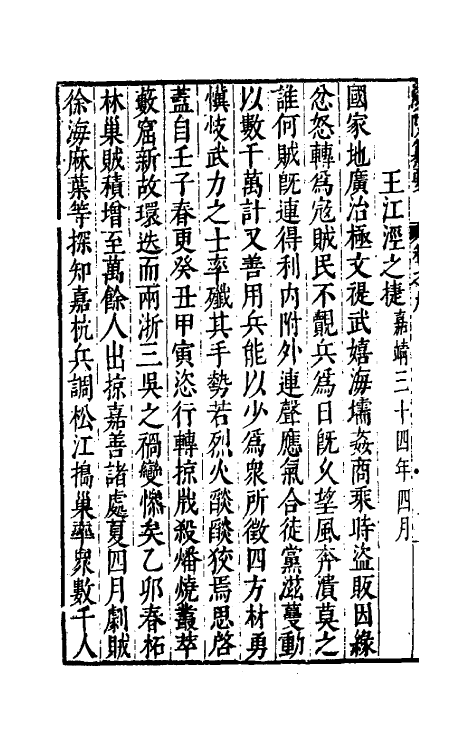 王江涇之捷嘉靖三十四年四月
國家地廣治極文禔武嬉海壖姦商乘時盜販因緣
忿怒轉爲寇賊民不覩兵爲日旣久望風奔潰莫之
誰何賊旣連得利內附外連聲應氣合徒黨滋蔓動
以數千萬計又善用兵能以少爲衆所徵四方材勇
慎忮武力之士率殲其手勢若烈火燄燄狡焉思啓
蓋自壬子春更癸丑甲寅恣行轉掠戕殺燔燒叢萃
藪窟新故環迭而兩浙三吳之禍變慘矣乙卯春柘
林巢賊積增至萬餘人出掠嘉善諸處夏四月劇賊
徐海麻葉等探知嘉杭兵調松江搗巢率衆數千人